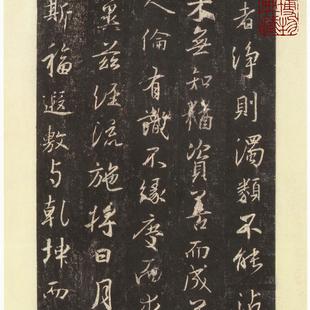 者净則濁類不能沾
木無知猶資善而成
人倫有識不緣慶而求
冀茲經流施將日月
斯福遐敷与乾坤而